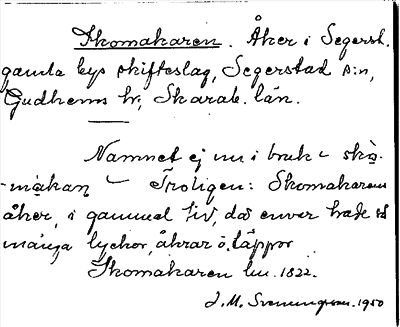 Skomakaren. Åker i Segerst.
gamla bys skifteslag, Segerstad s:n,
Gudhems hr, Skarab. län.
Namnet ej nu i bruk – skò̤-
-màkaɳ – Troligen: Skomakarens
åker, i gammal tid, då envar hade så
många lyckor, åkrar o. täppor
Skomakaren lm. 1822.
J. M. Svenungsson. 1950